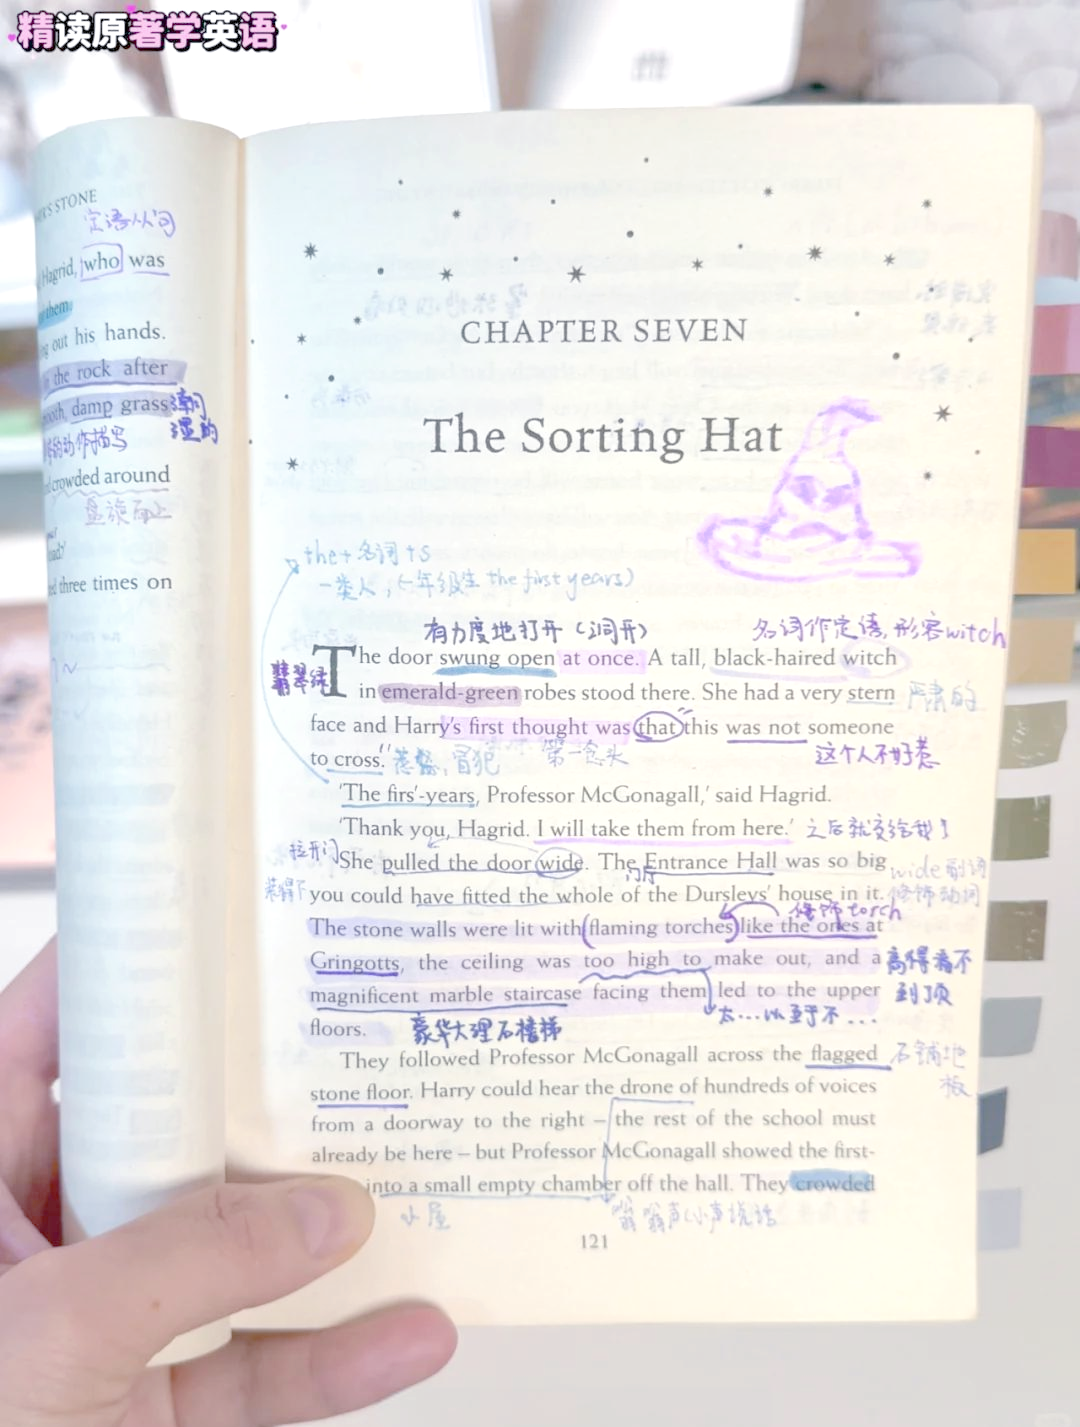 精读原著学英语
STONE
定语从句
Hagrid, who was
them
out his hands.
the rock after
damp grass
湿的
动作描写
crowded around
three times on
CHAPTER SEVEN
The Sorting Hat
the + 名词 + s
一类人，(一年级生 the first years)
有力度地打开（洞开）
名词作定语，形容witch
The door swung open at once. A tall, black-haired witch
翡翠绿
in emerald-green robes stood there. She had a very stern
严肃的
face and Harry's first thought was that this was not someone
to cross.
惹怒，冒犯
第一念头
这个人不好惹
'The firs'-years, Professor McGonagall,' said Hagrid.
'Thank you, Hagrid. I will take them from here.'
之后就交给我了
拉开门
She pulled the door wide. The Entrance Hall was so big
wide副词
门厅
装得下
you could have fitted the whole of the Dursleys' house in it.
修饰动词
修饰torch
The stone walls were lit with flaming torches like the ones at
Gringotts, the ceiling was too high to make out, and a
高得看不
magnificent marble staircase facing them led to the upper
到顶
floors.
豪华大理石楼梯
太...以至于不...
They followed Professor McGonagall across the flagged
石铺地
stone floor. Harry could hear the drone of hundreds of voices
板
from a doorway to the right – the rest of the school must
already be here – but Professor McGonagall showed the first-
into a small empty chamber off the hall. They crowded
小屋
嗡嗡声(小声说话
121